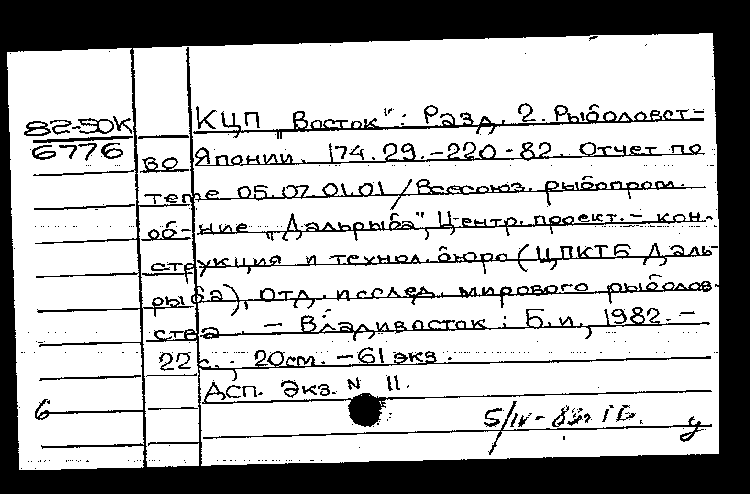 82-50К
6776
КЦП „Восток": Разд. 2. Рыболовст-
во Японии. 174.29.-220-82. Отчет по
теме 05.07.01.01/Всесоюз. рыбопром.
об-ние „Дальрыба", Центр. проект.-кон-
струкция и технол. бюро (ЦПКТБ Даль-
рыба), Отд. исслед. мирового рыболов-
ства. - Владивосток: Б.и., 1982. -
22 с.; 20см. - 61 экз.
ДСП. Экз. N 11.
6
5/IV-83г.